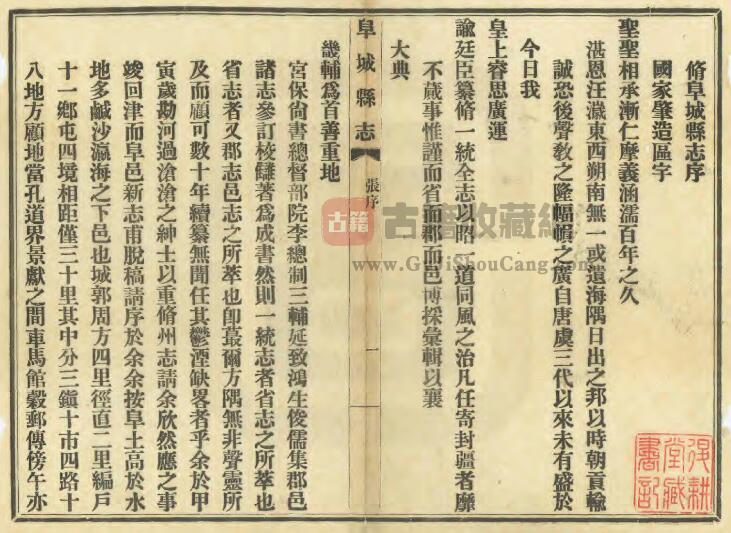 脩阜城縣志序
國家肇造區宇
聖聖相承漸仁摩義涵濡百年之久
湛恩汪濊東西朔南無一或遺海隅日出之邦以時朝貢輸
誠恐後聲敎之隆幅幀之廣自唐虞三代以來未有盛於
今日我
皇上睿思廣運
諭廷臣纂脩一統全志以昭一道同風之治凡任寄封疆者靡
不蕆事惟謹而省而郡而邑博採彙輯以襄
大典
阜城縣志
張序
一
畿輔爲首善重地
宮保尙書總督部院李總制三輔延致鴻生俊儒集郡邑
諸志參訂校讎著爲成書然則一統志者省志之所萃也
省志者又郡志邑志之所萃也卽蕞爾方隅無非聲靈所
及而顧可數十年續纂無聞任其鬱湮缺畧者乎余於甲
寅歲勘河過滄滄之紳士以重脩州志請余欣然應之事
竣回津而阜邑新志甫脫稿請序於余余按阜土高於水
地多鹹沙瀛海之下邑也城郭周方四里徑直二里編戶
十一鄉屯四境相距僅三十里其中分三鎭十市四路十
八地方顧地當孔道界景獻之間車馬館穀郵傳傍午亦
古籍
古籍收藏
www.GujiShouCang.com
堂藏
書記